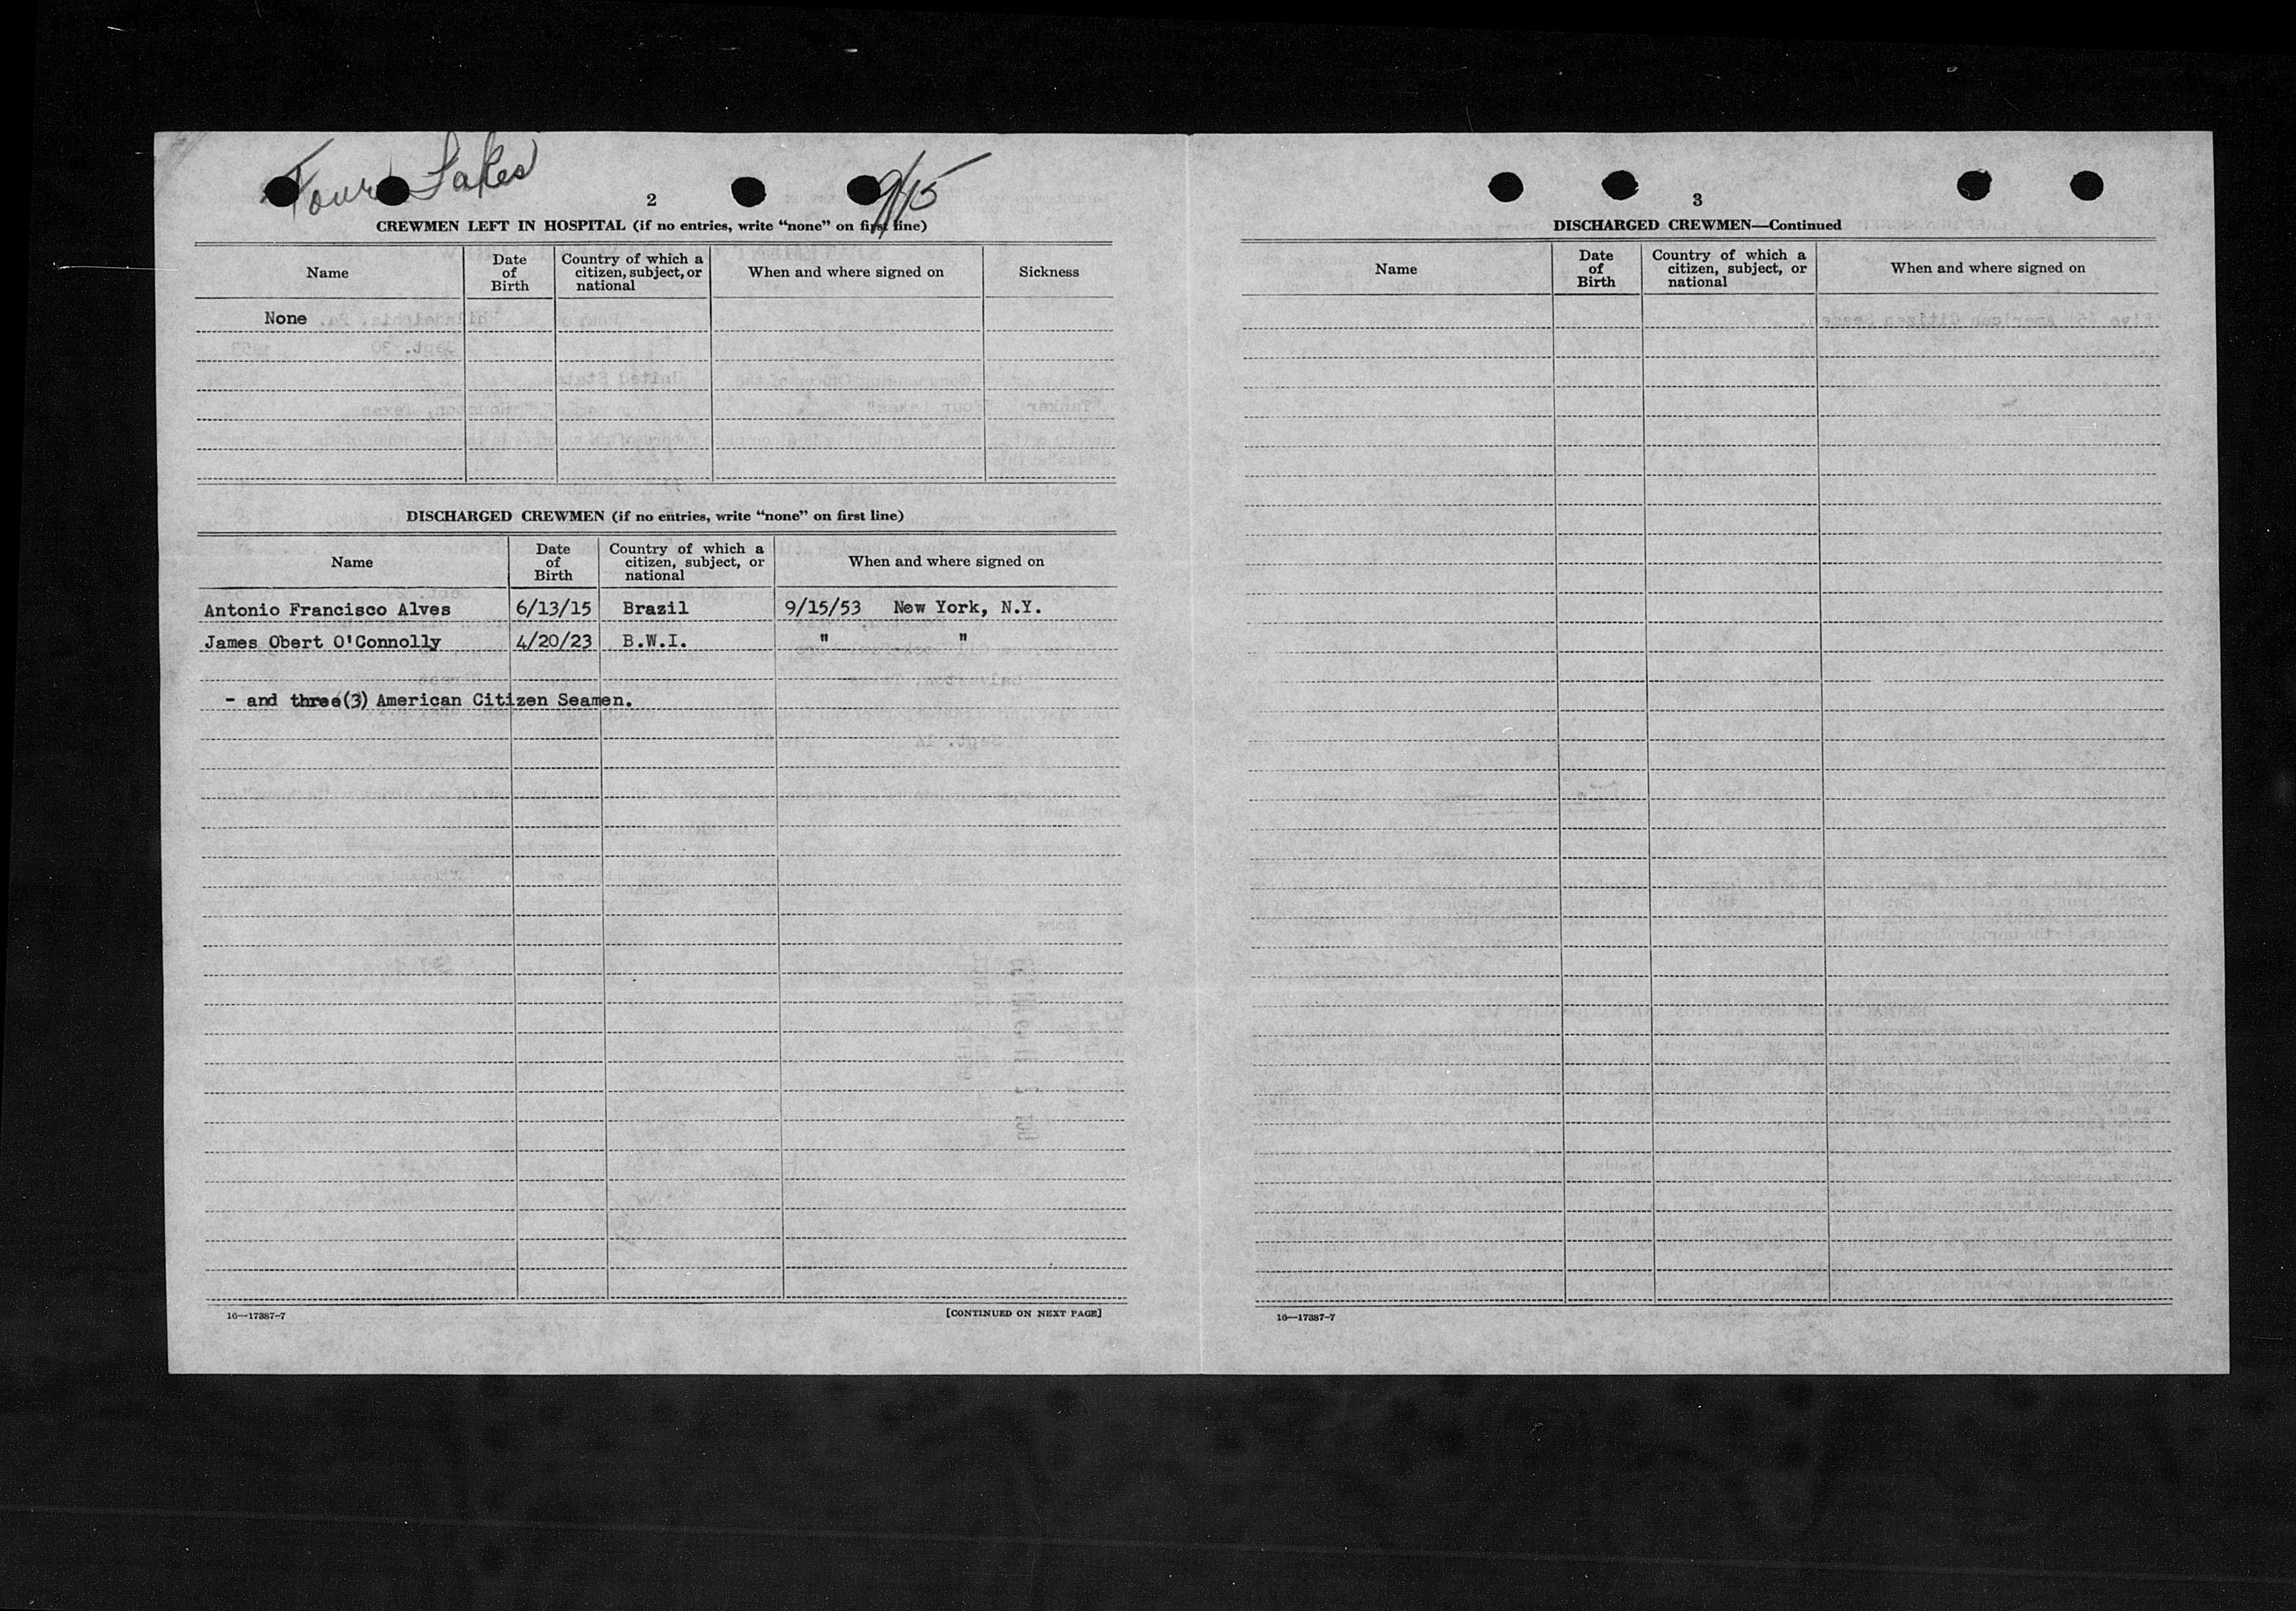 Four Lakes
9/15
2
CREWMEN LEFT IN HOSPITAL (if no entries, write “none” on first line)
Name
Date of Birth
Country of which a citizen, subject, or national
When and where signed on
Sickness
None
DISCHARGED CREWMEN (if no entries, write “none” on first line)
Name
Date of Birth
Country of which a citizen, subject, or national
When and where signed on
Antonio Francisco Alves 6/13/15 Brazil 9/15/53 New York, N.Y.
James Obert O'Connolly 4/20/23 B.W.I. " "
- and three(3) American Citizen Seamen.
16—17387-7
[CONTINUED ON NEXT PAGE]
3
DISCHARGED CREWMEN—Continued
Name
Date of Birth
Country of which a citizen, subject, or national
When and where signed on
16—17387-7